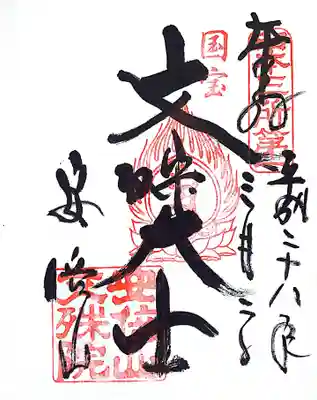 奉拝
平成二十八年
三月
国宝
文殊大士
安倍山
文殊院